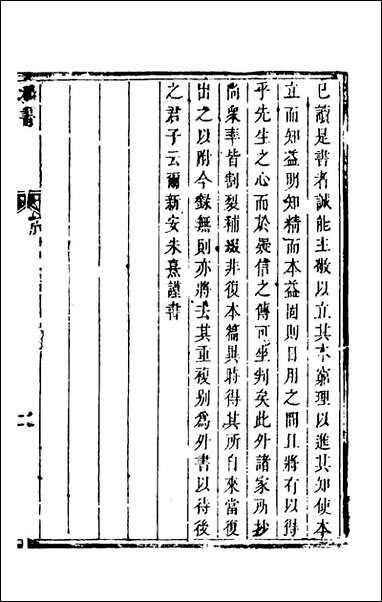 已讀是書者誠能主敬以立其本窮理以進其知使本
立而知益明知精而本益固則日用之間且將有以得
乎先生之心而於疑信之傳可坐判矣此外諸家所抄
尚衆率皆割裂補綴非復本篇異時得其所自來當復
出之以附今錄無則亦將去其重複別為外書以待後
之君子云爾新安朱熹謹書